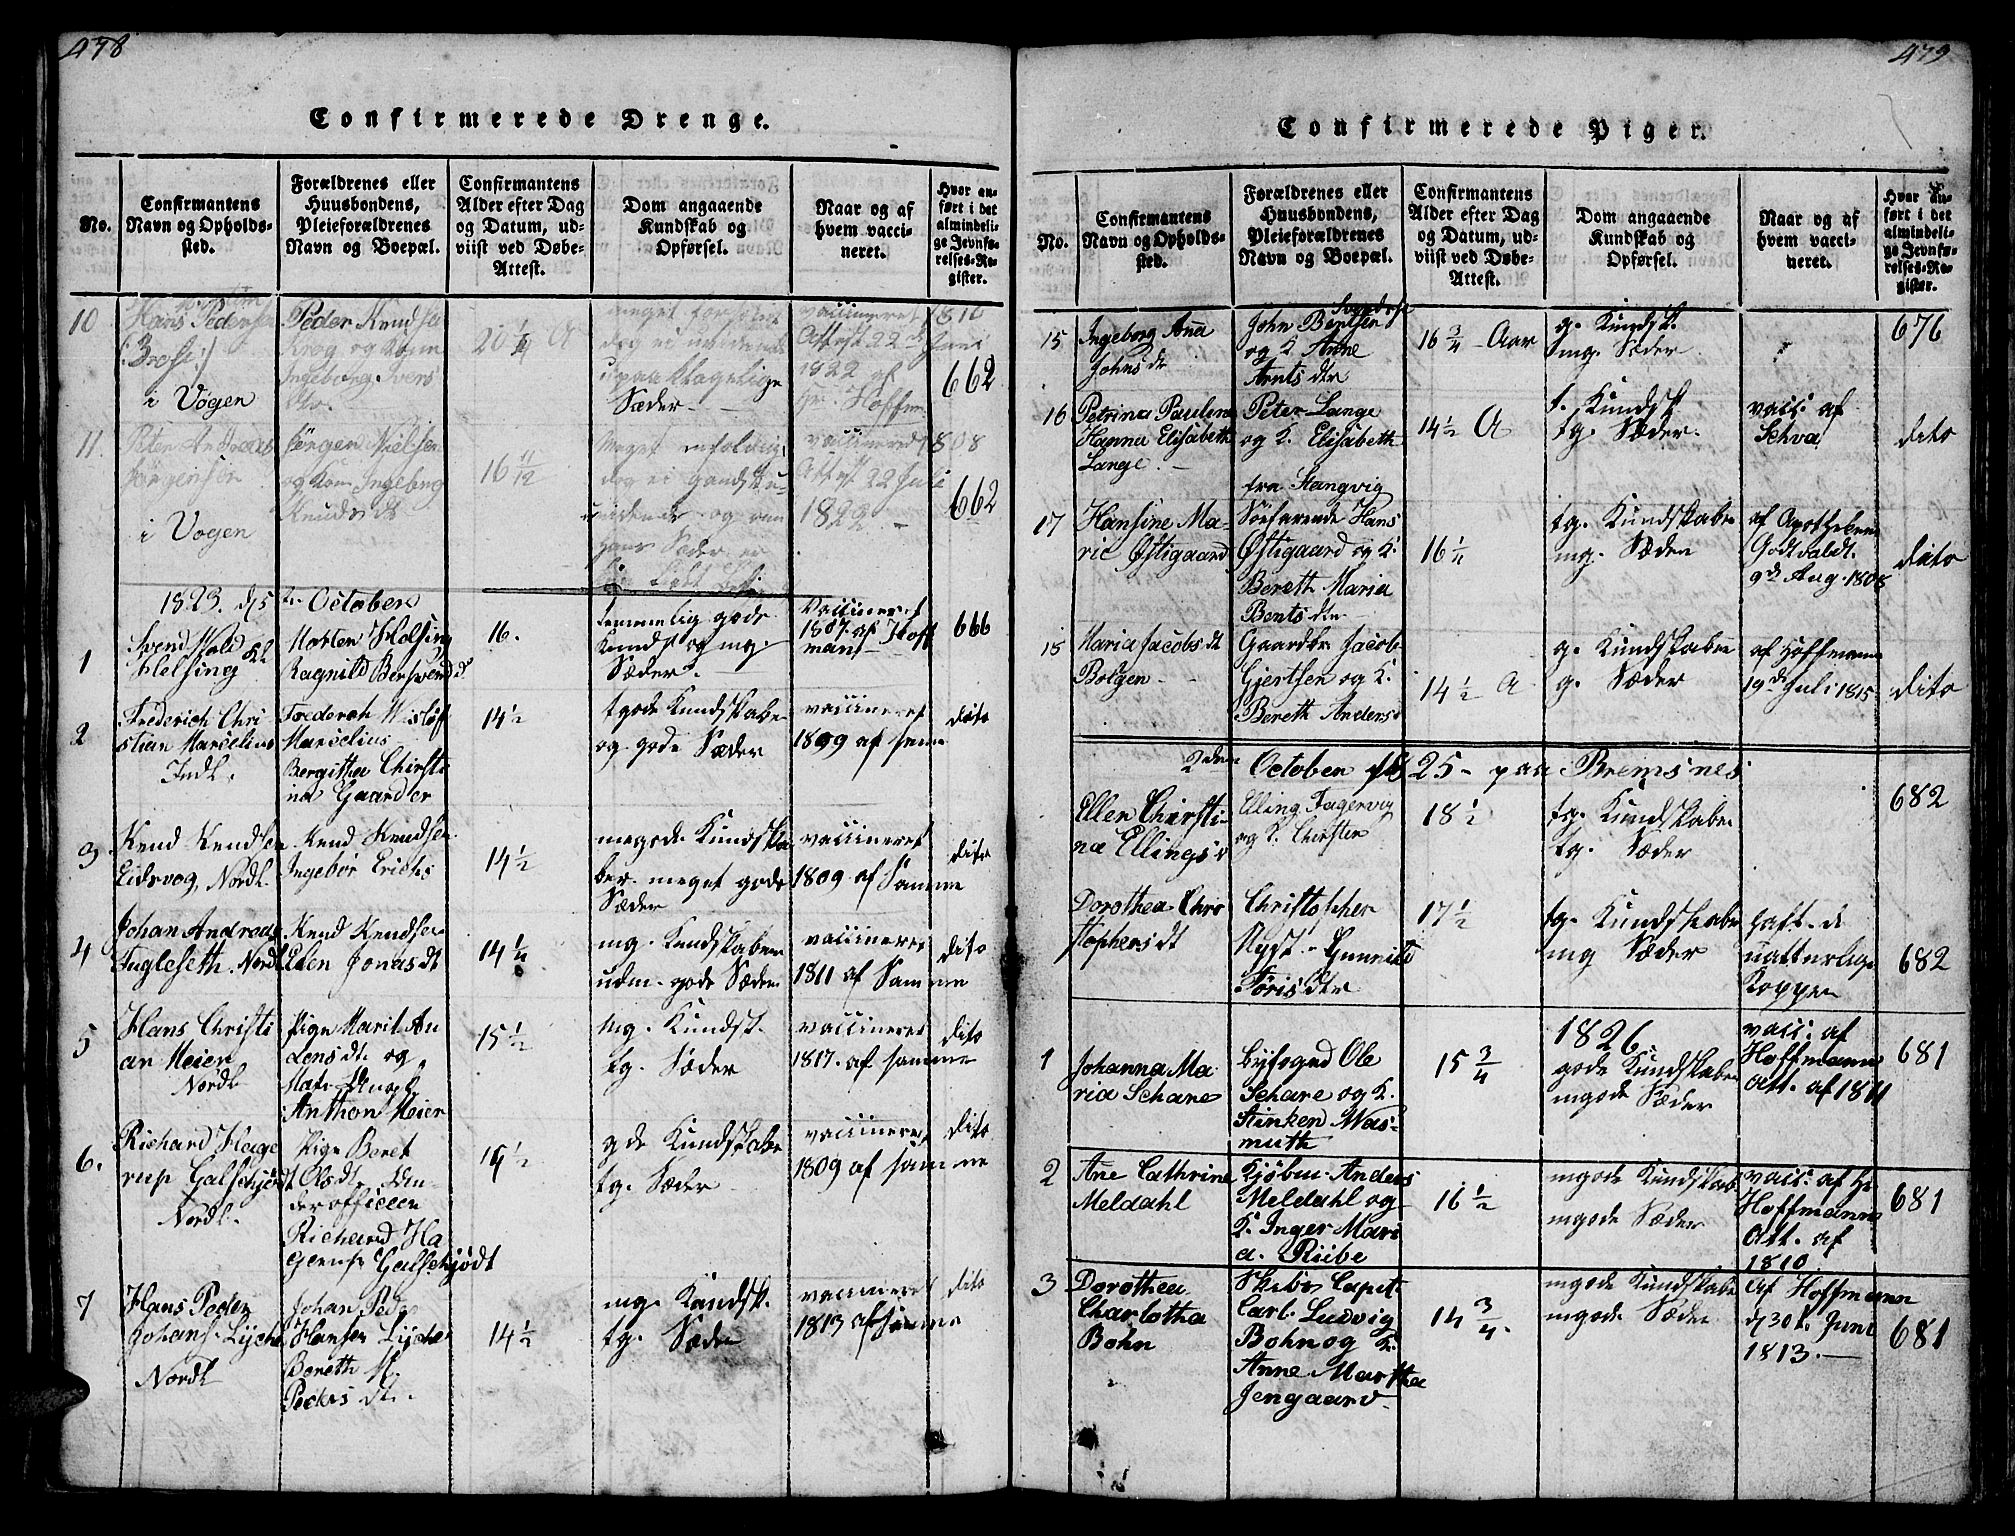 478
Confirmerede Drenge.
No.
Confirmantens
Navn og Opholds-
sted.
Forældrenes eller
Huusbondens,
Pleieforældrenes
Navn og Boepæl.
Confirmantens
Alder efter Dag
og Datum, ud-
viist ved Døbe-
Attest.
Dom angaaende
Kundskab og
Opførsel.
Naar og af
hvem vacci-
neret.
Hvor an-
ført i det
almindeli-
ge Jevnfø-
relses-Re-
gister.
10
Hans Pedersen
i Vogen
Peder Knudsen
Krog og Kone
Ingeborg Ivers
dtr.
20 1/4 A
upaaklagelige
Sæder
vaccineret 1810
Attest 22 de Juni
1822 af
Hr. Hoffm
662
11.
Peter Andreas
Jørgensen
i Vogen
Jørgen Nielsen
og Kone Ingeborg
Knuds dt
16 11/12
meget enfoldig
vaccineret 1808
Attest 22 Juli
1822
662
1823 d 5 te October
1
Svend Wold Kl
Helsing
Morten Holsing
Ragnild Berswend d
16.
temmelig gode
Kundst og mg.
Sæder.
Vaccineret
1807. af Hoff
mann
666
2
Frederich Chri
stian Marcelius
Indl.
Frederich Wisløf
Marcelius
Bergitha Christi
na Gaarder
14 1/2
tgode Kundskaber
og gode Sæder
vaccineret
1809 af same
dito
3
Knud Knudsen
Eidsvog, Nordl.
Knud Knudsen
Ingebor Erichs
14 1/2
megode Kundska
ber meget gode
Sæder
vaccineret
1809 af Samme
dito
4
Johan Andreas
Fugleseth Nordl
Knud Knudsen
Elen Jonas dt
14 1/4
mg. Kundskaber
udm. gode Sæder
vaccineret
1811 af Samme
dito
5
Hans Christi
an Meier
Nordl
Pige Marit An
dens dt. og
Anthon Meier
15 1/2
mg. Kundsk.
tg. Sæder
vaccineret
1817. af samme
dito
6.
Richard Hage
rup Galschjødt
Nordl.
Pige Beret
Olsdt. Un
derofficeer
Richard Ha
gerup Galschjødt
19 1/2
gde Kundskaber
tg. Sæder
vaccineret
1809 af samme
dito
7
Hans Peder
Johans. Lyche
Nordl
Johan Peder
Hansen Lyche
Bereth M.
Peders dt.
14 1/2
mg. Kundsk.
tg. Sæder
vaccineret
1813 af samme
dito
479
Confirmerede Piger.
No.
Confirmantens
Navn og Opholds-
sted.
Forældrenes eller
Huusbondens,
Pleieforældrenes
Navn og Boepæl.
Confirmantens
Alder efter Dag
og Datum, ud-
viist ved Døbe-
Attest.
Dom angaaende
Kundskab og
Opførsel.
Naar og af
hvem vacci-
neret.
Hvor an-
ført i det
almindeli-
ge Jevnfø-
relses-Re-
gister.
15
Ingeborg Ana
Johns dt
John Bentsen
og K. Anne
Arnts dtr
16 3/4 Aar
g. Kundsk.
mg. Sæder
676
16
Petrina Pauline
Hanna Elisabeth
Lange.
Peter Lange
og K. Elisabeth
14 1/2 A
t. Kundsk
tg. Sæder.
vacc. af
Schva
dito
17
Hansine Ma-
rie Østigaard
fra Stangvig
Sørfarende Hans
Østigaard og K.
Bereth Maria
Bents dtr
16 1/4
tg. Kundskaber
mg. Sæder
af Apothekeren
Godtfaldt.
9 d. Aug. 1808
dito
18
Maria Jacobs dt
Bolgen
Gaardbr. Jacob
Gjertsen og K.
Bereth Anders d
14 1/2 A
g. Kundskaber
g. Sæder
af Hoffmann
19 de Juli 1815
dito
2den October 1825 - paa Bremsnes
Ellen Christi
na Ellings d
Elling Fagervig
og K. Chirsten
18 1/2
tg. Kundskaber
tg. Sæder
682
Dorothea Chri
stophers dt
Christopher
Nyst Gunnild
Toris dtr
17 1/2
tg. Kundskaber
mg Sæder
haft de
naturlige
Kopper
682
1826
1
Johanna Ma
ria Schare
Byfoged Ole
Schare og K.
Stinken Was
muth
15 3/4
gode Kundskaber
mgode Sæder
vacc. af
Hoffmann
Att. af 1811
681
2
Ane Cathrine
Meldahl
Kjøbm. Anders
Meldahl og
K. Inger Mari
a. Riibe
16 1/2
mgode Kundskab
mgode Sæder
vacc. af Hr
Hoffmann
Att. af
1810
681
3
Dorothea
Charlotha
Bohn
Skibs Capit.
Carl Ludvig
Bohn og K.
Anne Martha
Jengaard
14 3/4.
mgode Kundskabe
mgode Sæder
af Hoffmann
d 30 t. Juni
1813.
681